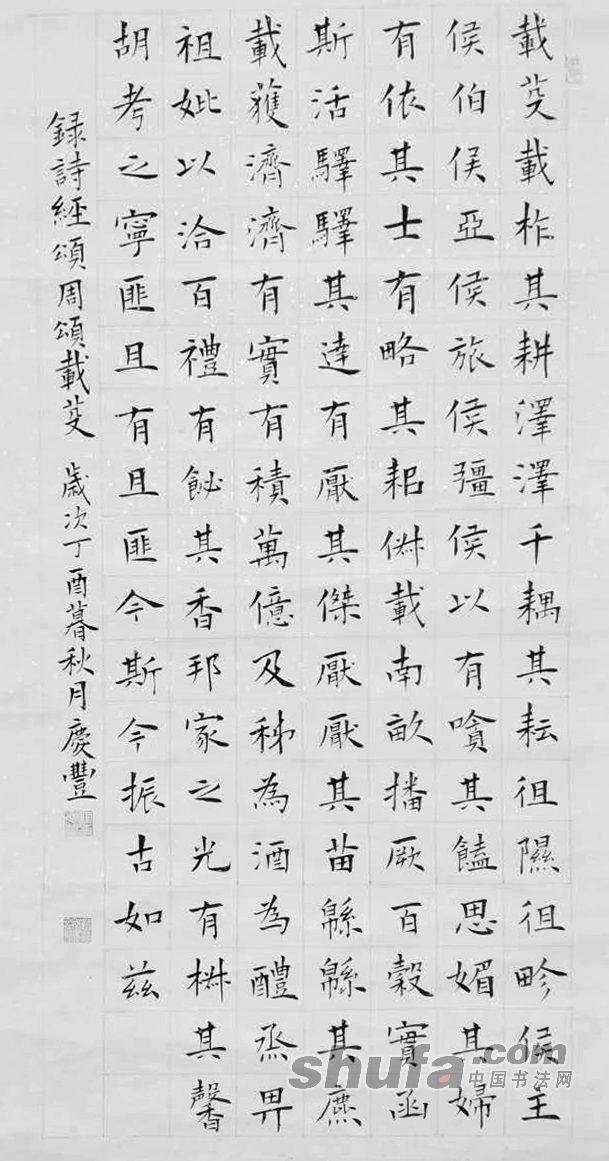 載芟載柞其耕澤澤千耦其耘徂隰徂畛侯主
侯伯侯亞侯旅侯彊侯以有嗿其饁思媚其婦
有依其士有略其耜俶載南畝播厥百穀實函
斯活驛驛其達有厭其傑厭厭其苗緜緜其麃
載獲濟濟有實有積萬億及秭為酒為醴烝畀
祖妣以洽百禮有飶其香邦家之光有椒其馨
胡考之寧匪且有且匪今斯今振古如茲
錄詩經頌周頌載芟 歲次丁酉暮秋月慶豐
shufa.com
中国书法网